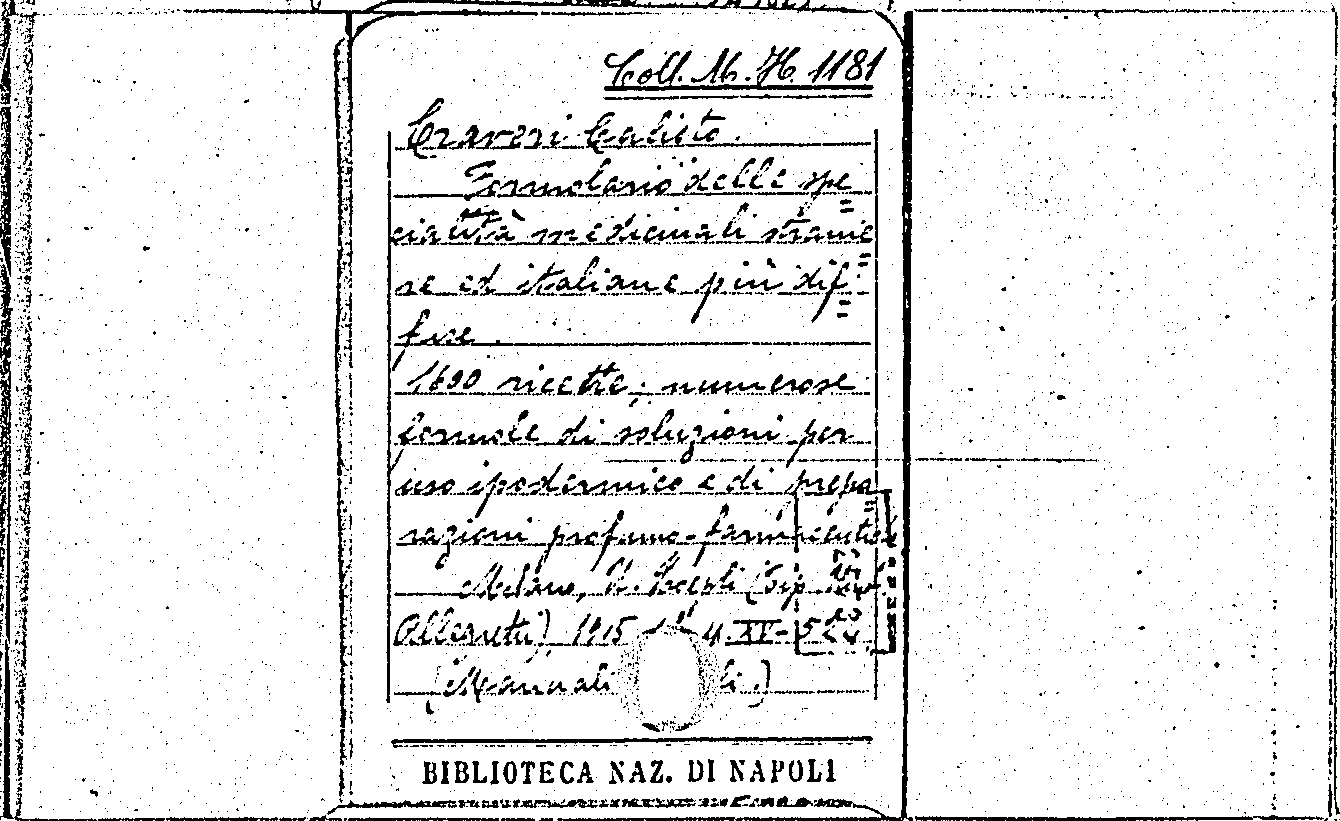 Coll. M. H. 1181
Craveri Calisto.
Formolario delle spe=
cialità medicinali stranie=
re ed italiane più dif=
fuse.
1600 ricette; numerose
formole di soluzioni per
uso ipodermico e di prepa=
razioni profumo-farmaceutic
Milano, U. Hoepli (Tip.
Allegretti) 1915 4. XV-52
(Manuali li.)
BIBLIOTECA NAZ. DI NAPOLI